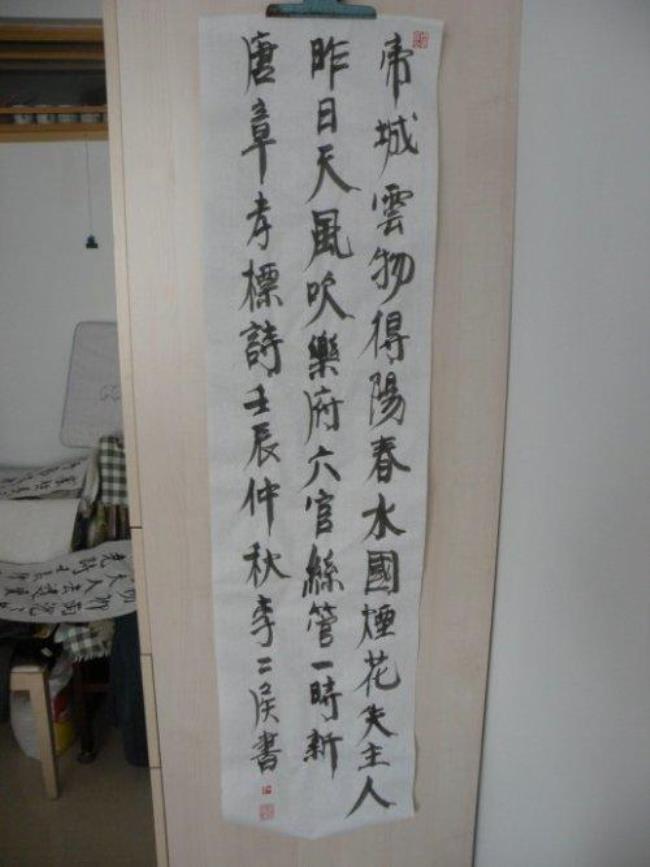 帝城雲物得陽春水國煙花失主人
昨日天風吹樂府六官絲管一時新
唐章孝標詩壬辰仲秋李二侯書